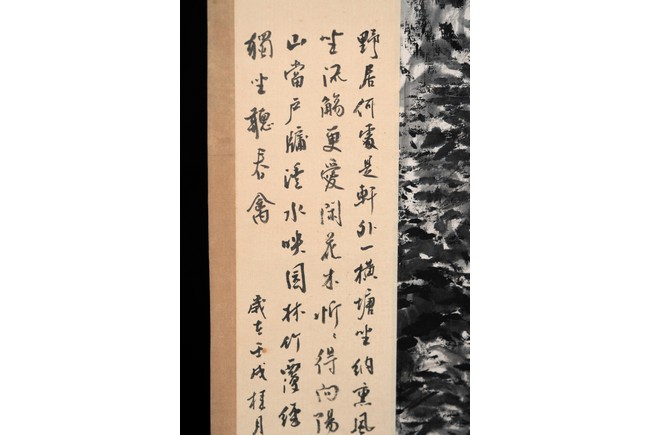 野居何處是軒外一橫塘坐納熏風
坐流觴更愛閑花木忻〻得向陽
山當戶牖溪水映園林竹覆經
獨坐聽春禽
歲在壬戌桂月